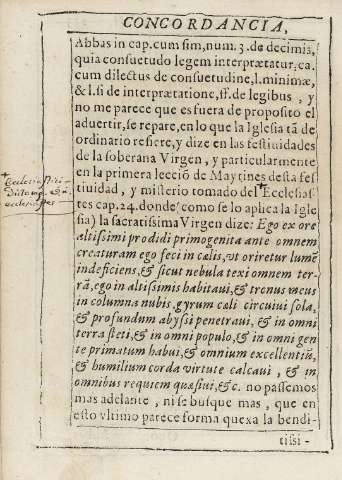 CONCORDANCIA,
Abbas in cap. cum sim, num. 3. de decimis,
quia consuetudo legem interprætatur, ca.
cum dilectus de consuetudine, l. minimæ,
& l. si de interprætatione, ff. de legibus, y
no me parece que es fuera de proposito el
advertir, se repare, en lo que la Iglesia tã de
ordinario refiere, y dize en las festiuidades
de la soberana Virgen, y particularmente
en la primera lecciõ de Maytines desta fes
tiuidad, y misterio tomado del Ecclesias-
tes cap. 24. donde (como se lo aplica la Igle
sia) la sacratissima Virgen dize: Ego ex ore
altissimi prodidi primogenita ante omnem
creaturam ego feci in cœlis, vt oriretur lumẽ
indeficiens, & sicut nebula texi omnem ter-
rã, ego in altissimis habitaui, & tronus meus
in columna nubis, gyrum cœli circuiui sola,
& profundum abyssi penetraui, & in omni
terra steti, & in omni populo, & in omni gen
te primatum habui, & omnium excellentiũ,
& humilium corda virtute calcaui, & in
omnibus requiem quæsiui, &c. no passemos
mas adelante, ni se busque mas, que en
esto vltimo parece forma quexa la bendi-
tissi-